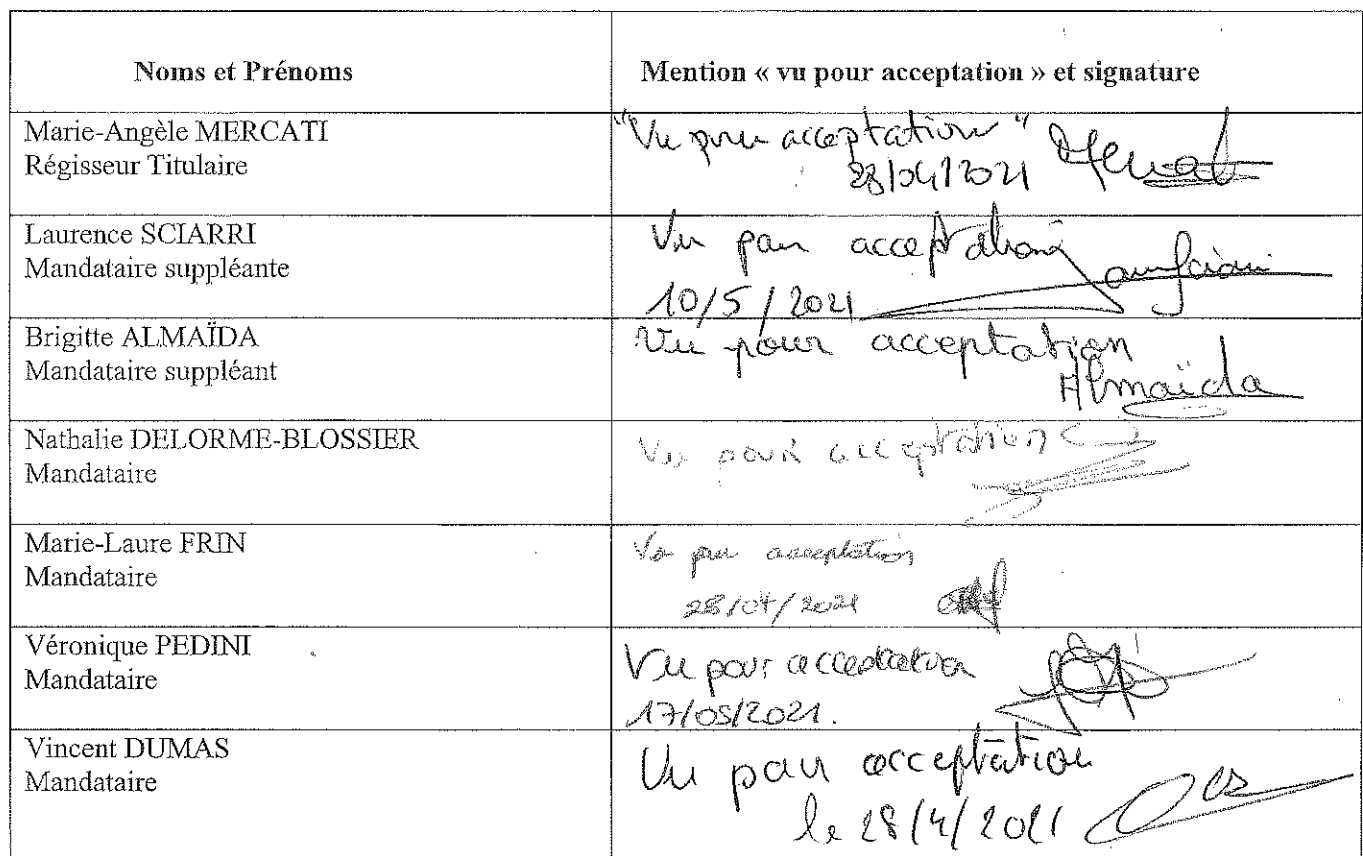 Noms et Prénoms
Mention « vu pour acceptation » et signature
Marie-Angèle MERCATI
Régisseur Titulaire
"Vu pour acceptation"
28/04/2021
Laurence SCIARRI
Mandataire suppléante
Vu pour acceptation
10/5/2021
Brigitte ALMAÏDA
Mandataire suppléant
Vu pour acceptation
Almaïda
Nathalie DELORME-BLOSSIER
Mandataire
Vu pour acceptation
Marie-Laure FRIN
Mandataire
Vu pour acceptation
28/04/2021
Véronique PEDINI
Mandataire
Vu pour acceptation
17/05/2021.
Vincent DUMAS
Mandataire
Vu pour acceptation
le 28/4/2021